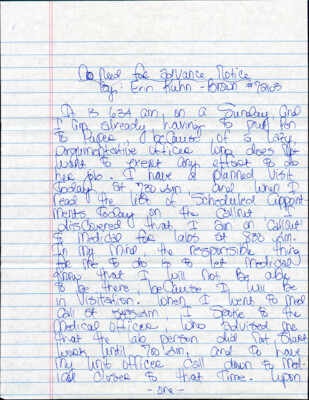 No Need for advance Notice
By: Erin Kuhn - Brown
It is 634 am, on a Sunday, and
I am already having to put pen
to Paper because of a lazy
argumentative officer who does not
want to exert any effort to do
her job. I have a planned visit
today at 730 am, and when I
read the list of scheduled appoint
ments today on the callout I
discovered that I am on 'callout'
to medical for labs at 800 am.
In my mind the responsible thing
for me to do is to let medical
know that I will not be able
to be there, because I will be
in visitation. When I went to med
call at 545 am, I spoke to the
medical officer, who advised me
that the lab person did not start
work until 700 am, and to have
my unit officer call down to med-
ical closer to that time. Upon
- one -